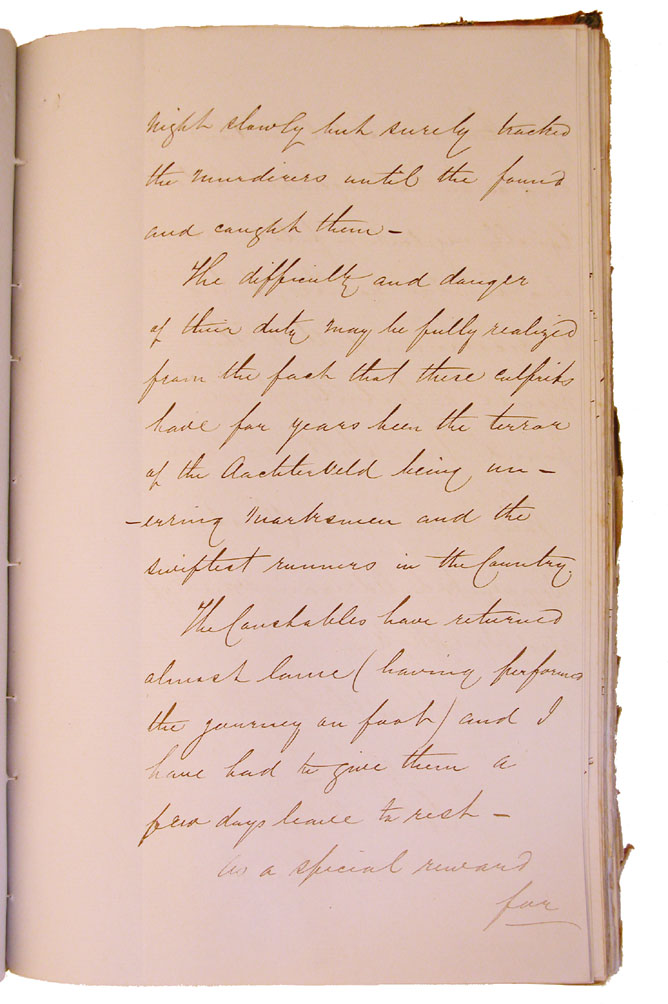 night slowly but surely tracked
the murderers until the found
and caught them –
The difficulty and danger
of their duty may be fully realized
from the fact that these culprits
have for years been the terror
of the Aachterveld being un –
– erring marksmen and the
swiftest runners in the Country.
The Constables have returned
almost lame (having performed
the journey on foot) and I
have had to give them a
few days leave to rest –
As a special reward
for